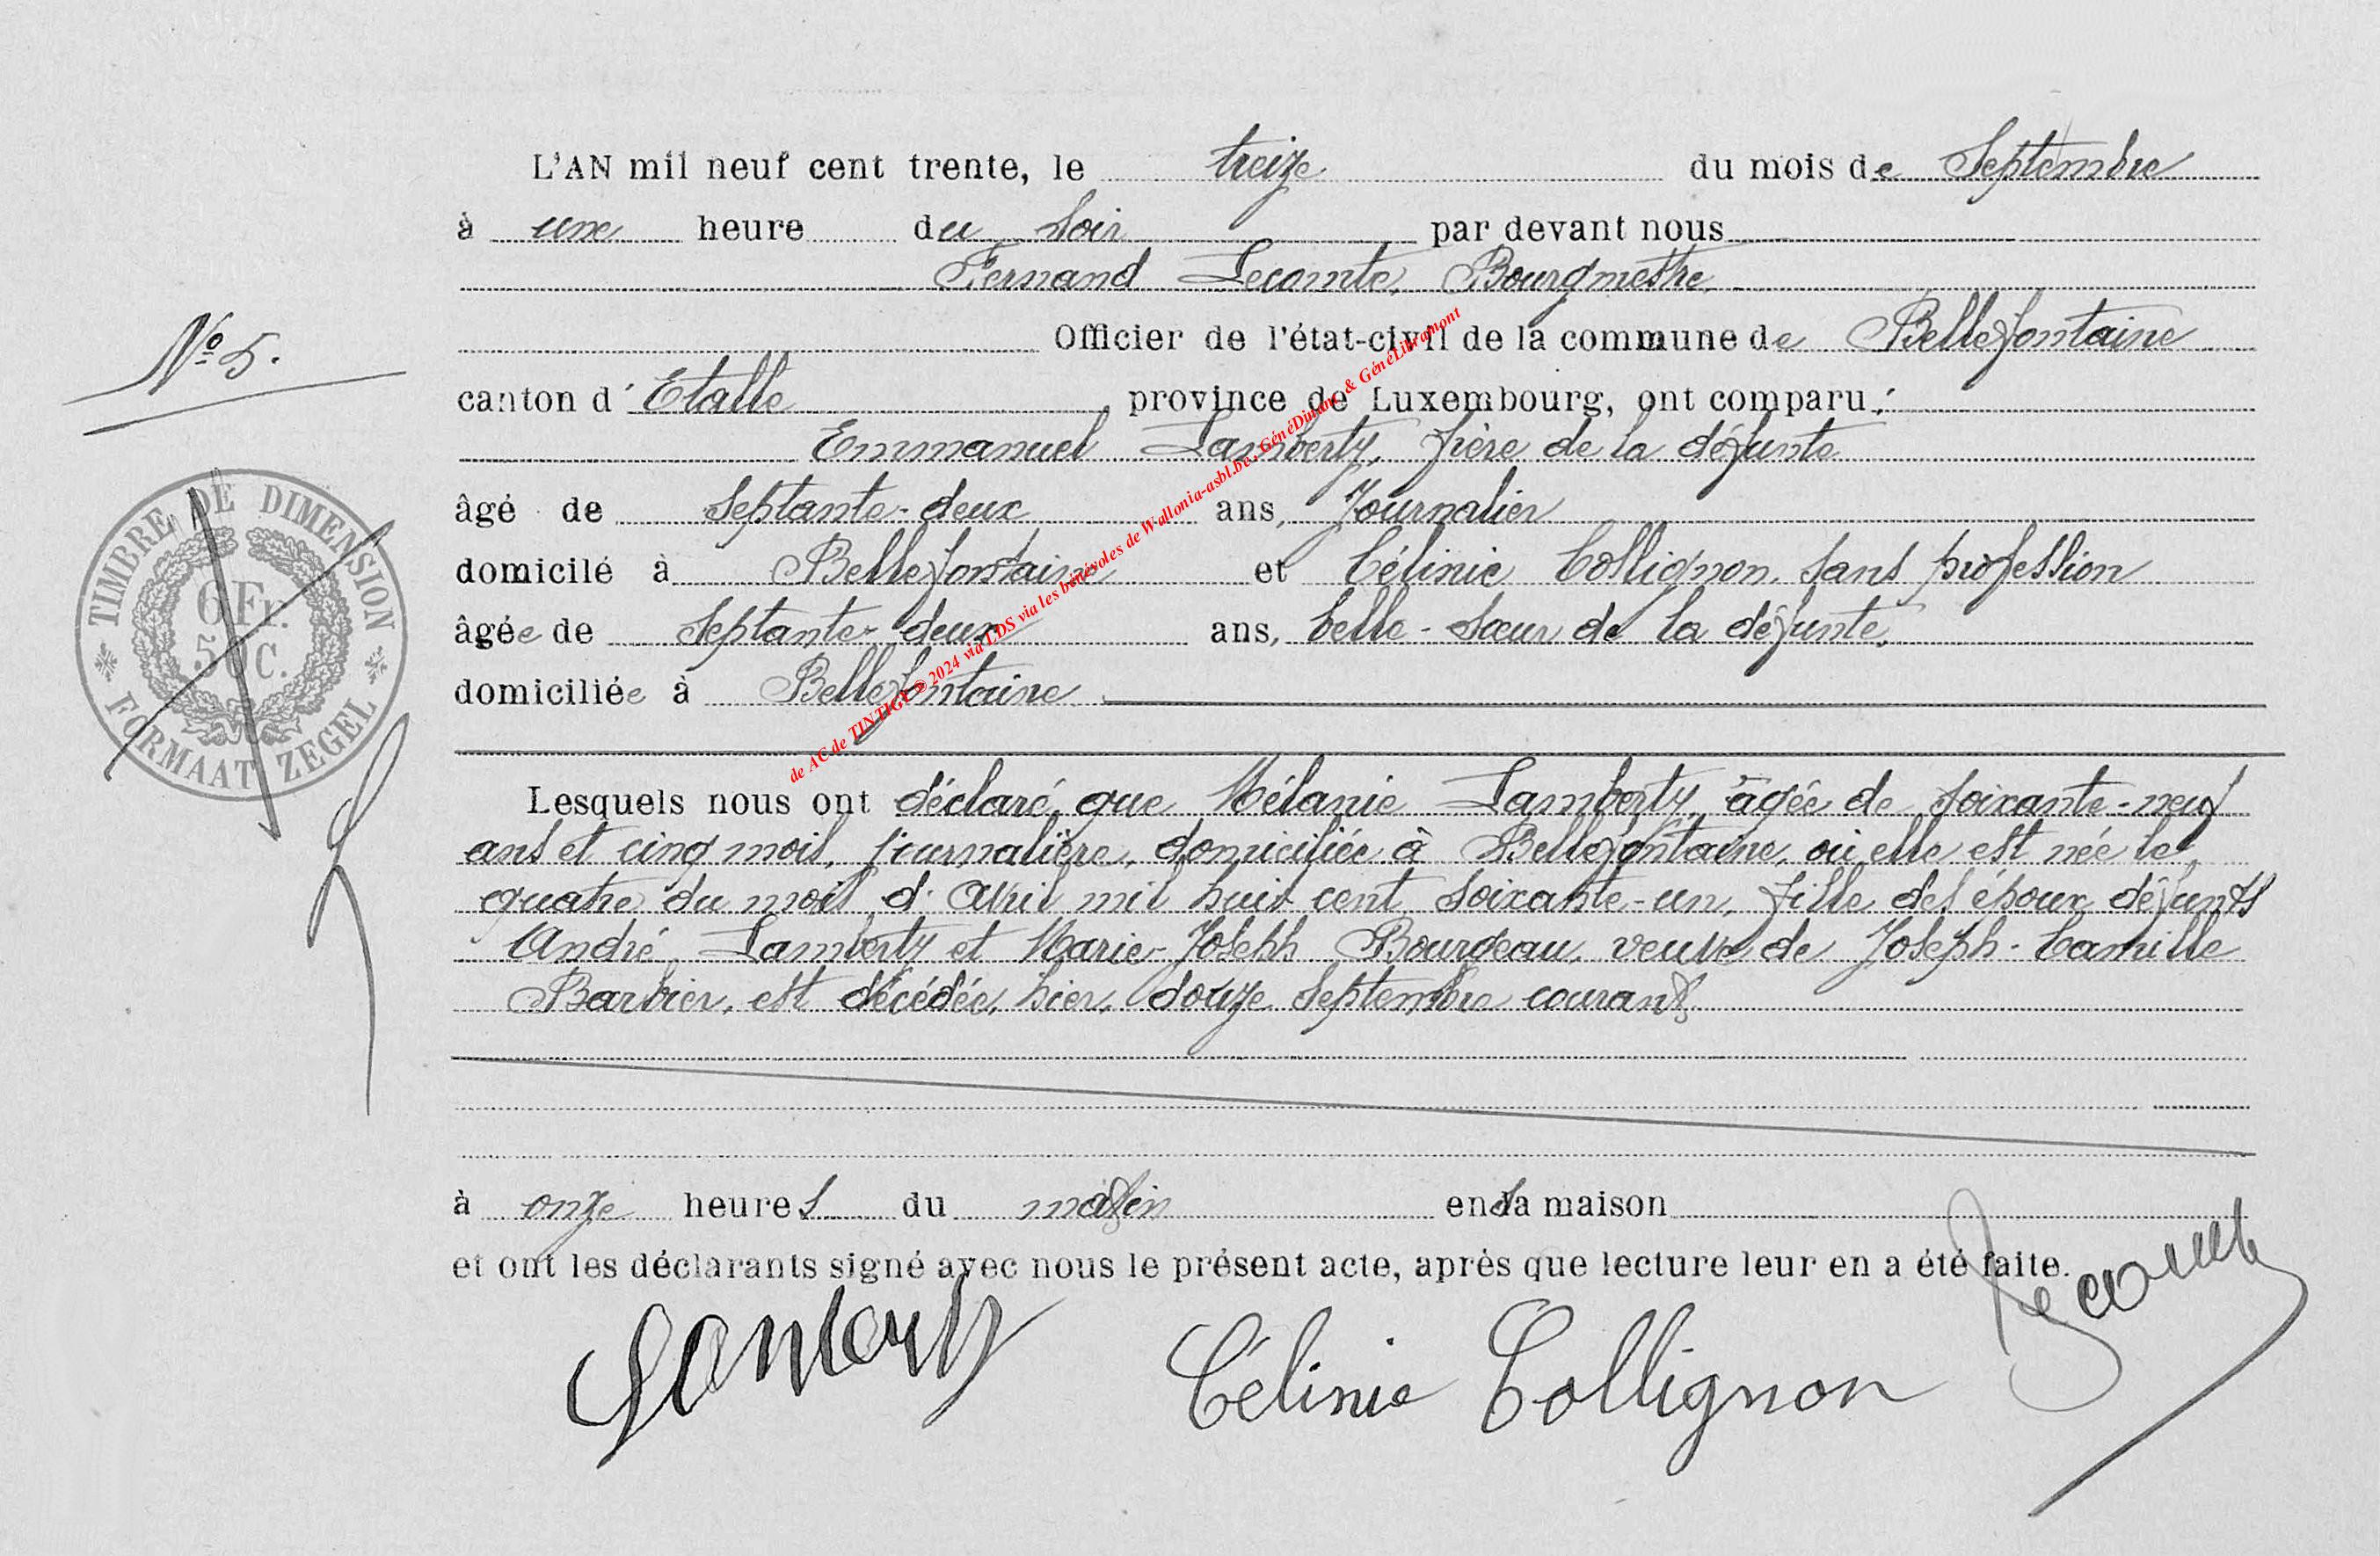 L'AN mil neuf cent trente, le treize du mois de Septembre
à une heure du soir par devant nous
Fernand Lecomte, Bourgmestre
Officier de l'état-civil de la commune de Bellefontaine
N° 5.
canton d' Etalle province de Luxembourg, ont comparu :
Emmanuel Lamberty, frère de la défunte
âgé de Septante-deux ans, Journalier
domicilé à Bellefontaine et Célinie Collignon sans profession
âgée de Septante-deux ans, belle-sœur de la défunte,
domiciliée à Bellefontaine
TIMBRE DE DIMENSION
6 Fr.
50 C.
FORMAAT ZEGEL
de AC de TINTIGNY © 2024 via LDS via les bénévoles de Wallonia-asbl.be, GénéDinant & GénéLibramont
Lesquels nous ont déclaré que Mélanie Lamberty, âgée de soixante-neuf
ans et cinq mois, journalière, domiciliée à Bellefontaine, où elle est née le
quatre du mois d'Avril mil huit cent soixante-un, fille des époux défunts
André Lamberty et Marie-Joseph Bourgeau, veuve de Joseph-Camille
Barbier, est décédée, hier, douze Septembre courant
à onze heures du matin en sa maison
et ont les déclarants signé avec nous le présent acte, après que lecture leur en a été faite.
Lecomte
Lamberty Célinie Collignon